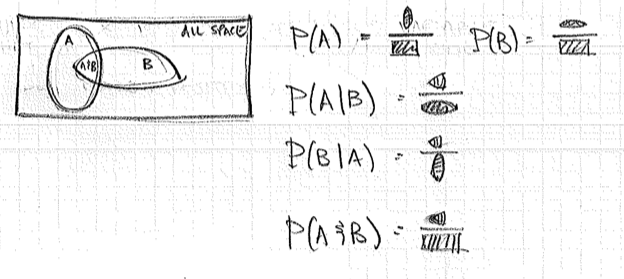 ALL SPACE
A A&B B
P(A) = P(B) =
P(A|B) =
P(B|A) =
P(A&B) =